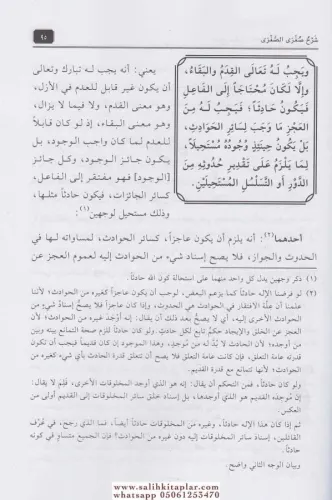 شَرْحُ صُغْرَى الصُّغْرَى
٩٥
وَيَجِبُ لَهُ تَعَالَى القِدَمُ وَالبَقَاءُ،
وَإِلَّا لَكَانَ مُحْتَاجاً إِلَى الفَاعِلِ
فَيَكُونُ حَادِثاً؛ فَيَجِبُ لَهُ مِنَ
العَجْزِ مَا وَجَبَ لِسَائِرِ الحَوَادِثِ،
بَلْ يَكُونُ حِينَئِذٍ وُجُودُهُ مُسْتَحِيلاً،
لِمَا يَلْزَمُ عَلَى تَقْدِيرِ حُدُوثِهِ مِنَ
الدَّوْرِ أَوِ التَّسَلْسُلِ المُسْتَحِيلَيْنِ.
يعني: أنه يجب له تبارك وتعالى
أن يكون غير قابل للعدم في الأزل،
وهو معنى القدم، ولا فيما لا يزال،
وهو معنى البقاء، إذ لو كان قابلاً
للعدم لما كان واجب الوجود، بل
يكون جائز الوجود، وكل جائز
[الوجود] فهو مفتقر إلى الفاعل،
كسائر الجائزات، فيكون حادثاً مثلها،
وذلك مستحيل لوجهين(١):
أحدهما(٢): أنه يلزم أن يكون عاجزاً، كسائر الحوادث، لمساواته لها في
الحدوث والجواز، فلا يصح إسناد شيء من الحوادث إليه لعموم العجز عن
(١) ذكر وجهين يدل كل واحد منهما على استحالة كون الله حادثاً.
(٢) لو فرضنا الإله حادثاً كما يزعم البعض، لوجب أن يكون عاجزاً كغيره من الحوادث؛ لأننا
نعلم أن علة الافتقار في الحوادث هي الحدوث، وإذا كان عاجزاً فلا يصح إسناد شيء من
الحوادث الأخرى إليه، أي لا يصح بعد ذلك أن يقال: إنه أوجد غيره من الحوادث؛ لأن
العجز عن الخلق والإيجاد حكم تابع لكل حادث. ولو كان حادثاً للزم صحة التمانع بينه وبين
من أوجده؛ لأن الحادث لا بد له من موجد، وهذا الموجود إن كان قديماً فيجب أن تكون
قدرته عامة التعلق، فإن كانت عامة التعلق فلا يصح أن تتعلق قدرة الحادث بأي شيء كغيره من
الحوادث؛ للزوم التمانع مع قدرة القديم.
ولو كان حادثاً، فمن التحكم أن يقال: إنه هو الذي أوجد المخلوقات الأخرى، فلِمَ لا يقال:
إن موجده القديم هو الذي أوجدها، بل إسناد خلق سائر المخلوقات إلى القديم أولى من
العكس.
ثم إذا كان هذا الإله حادثاً، وغيره من المخلوقات حادثاً أيضاً، فما الذي رجح، في عُرْف
القائلين، إسناد سائر المخلوقات إليه دون غيره من الحوادث؟ فإن الجميع متساوٍ في كونه
حادثاً.
وبيان الوجه الثاني واضح.
www.salihkitaplar.com
whatsapp 05061253470